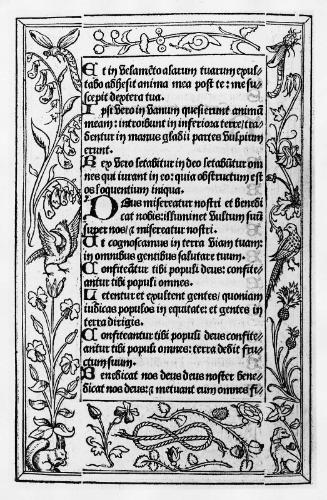 Et in velamēto alarum tuarum exul-
tabo adhesit anima mea post te: me su-
scepit dextera tua.
Ipsi vero in vanum quesierunt animā
meam: introibunt in inferiora terre/ tra-
dentur in manus gladii partes vulpium
erunt.
Rex vero letabitur in deo letabūtur om̄
nes qui iurant in eo: quia obstructum est
os loquentium iniqua.
Deus misereatur nostri et benedi
cat nobis: illuminet vultum suū
super nos/ & misereatur nostri.
Ut cognoscamus in terra viam tuam:
in omnibus gentibus salutare tuum.
Confiteātur tibi populi deus: confite-
antur tibi populi omnes.
Letentur et exultent gentes/ quoniam
iudicas populos in equitate: et gentes in
terra dirigis.
Confiteantur tibi populi deus confite-
antur tibi populi omnes: terra dedit fru-
ctum suum.
Benedicat nos deus deus noster bene-
dicat nos deus: & metuant eum omnes fi-